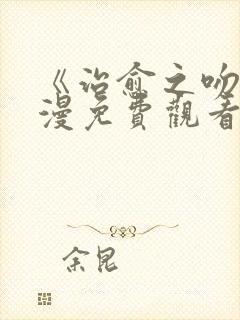 《治愈之吻
漫免費觀看
余昆